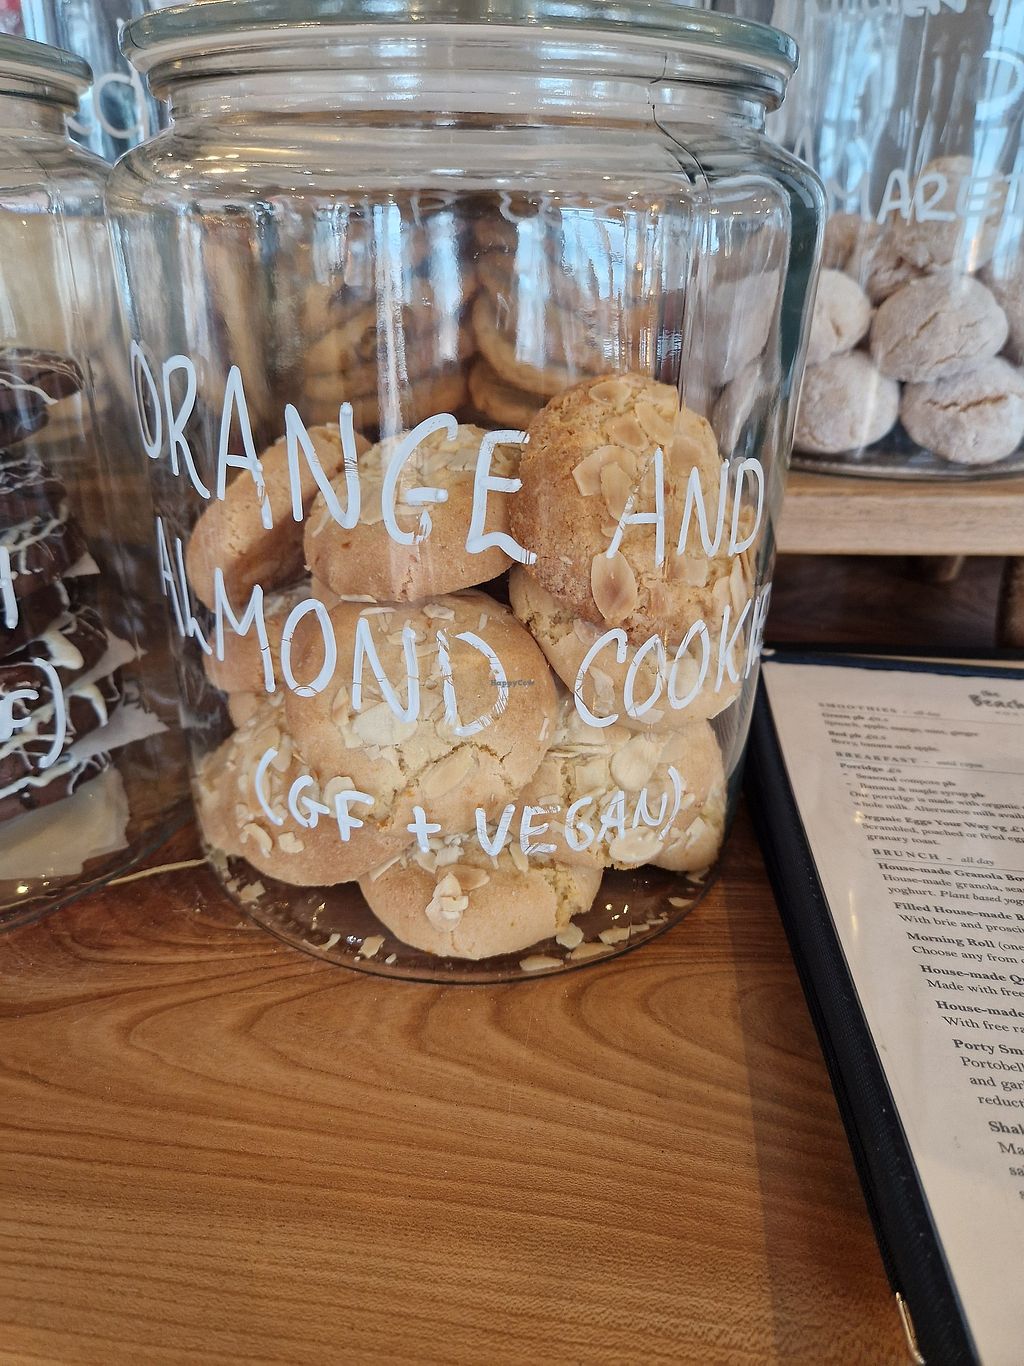 ORANGE AND
ALMOND COOKI
(GF + VEGAN)
HappyCow
AMARET
the
Beach
SMOOTHIES - all day
Green pb £6.5
Spinach, apple, mango, mint, ginger
Red pb £6.5
Berry, banana and apple.
BREAKFAST - until
Porridge £8
Seasonal compote pb
Banana & maple syrup pb
Our porridge is made with organic
whole milk. Alternative milk availa
Organic Eggs Your Way vg £
Scrambled, poached or fried eg
granary toast.
BRUNCH - all day
House-made Granola Bo
House-made granola, sea
yoghurt. Plant based yog
Filled House-made B
With brie and prosci
Morning Roll (one
Choose any from
House-made Q
Made with free
House-made
With free ra
Porty Sm
Portobell
and gar
reduct
Shak
Ma
sa